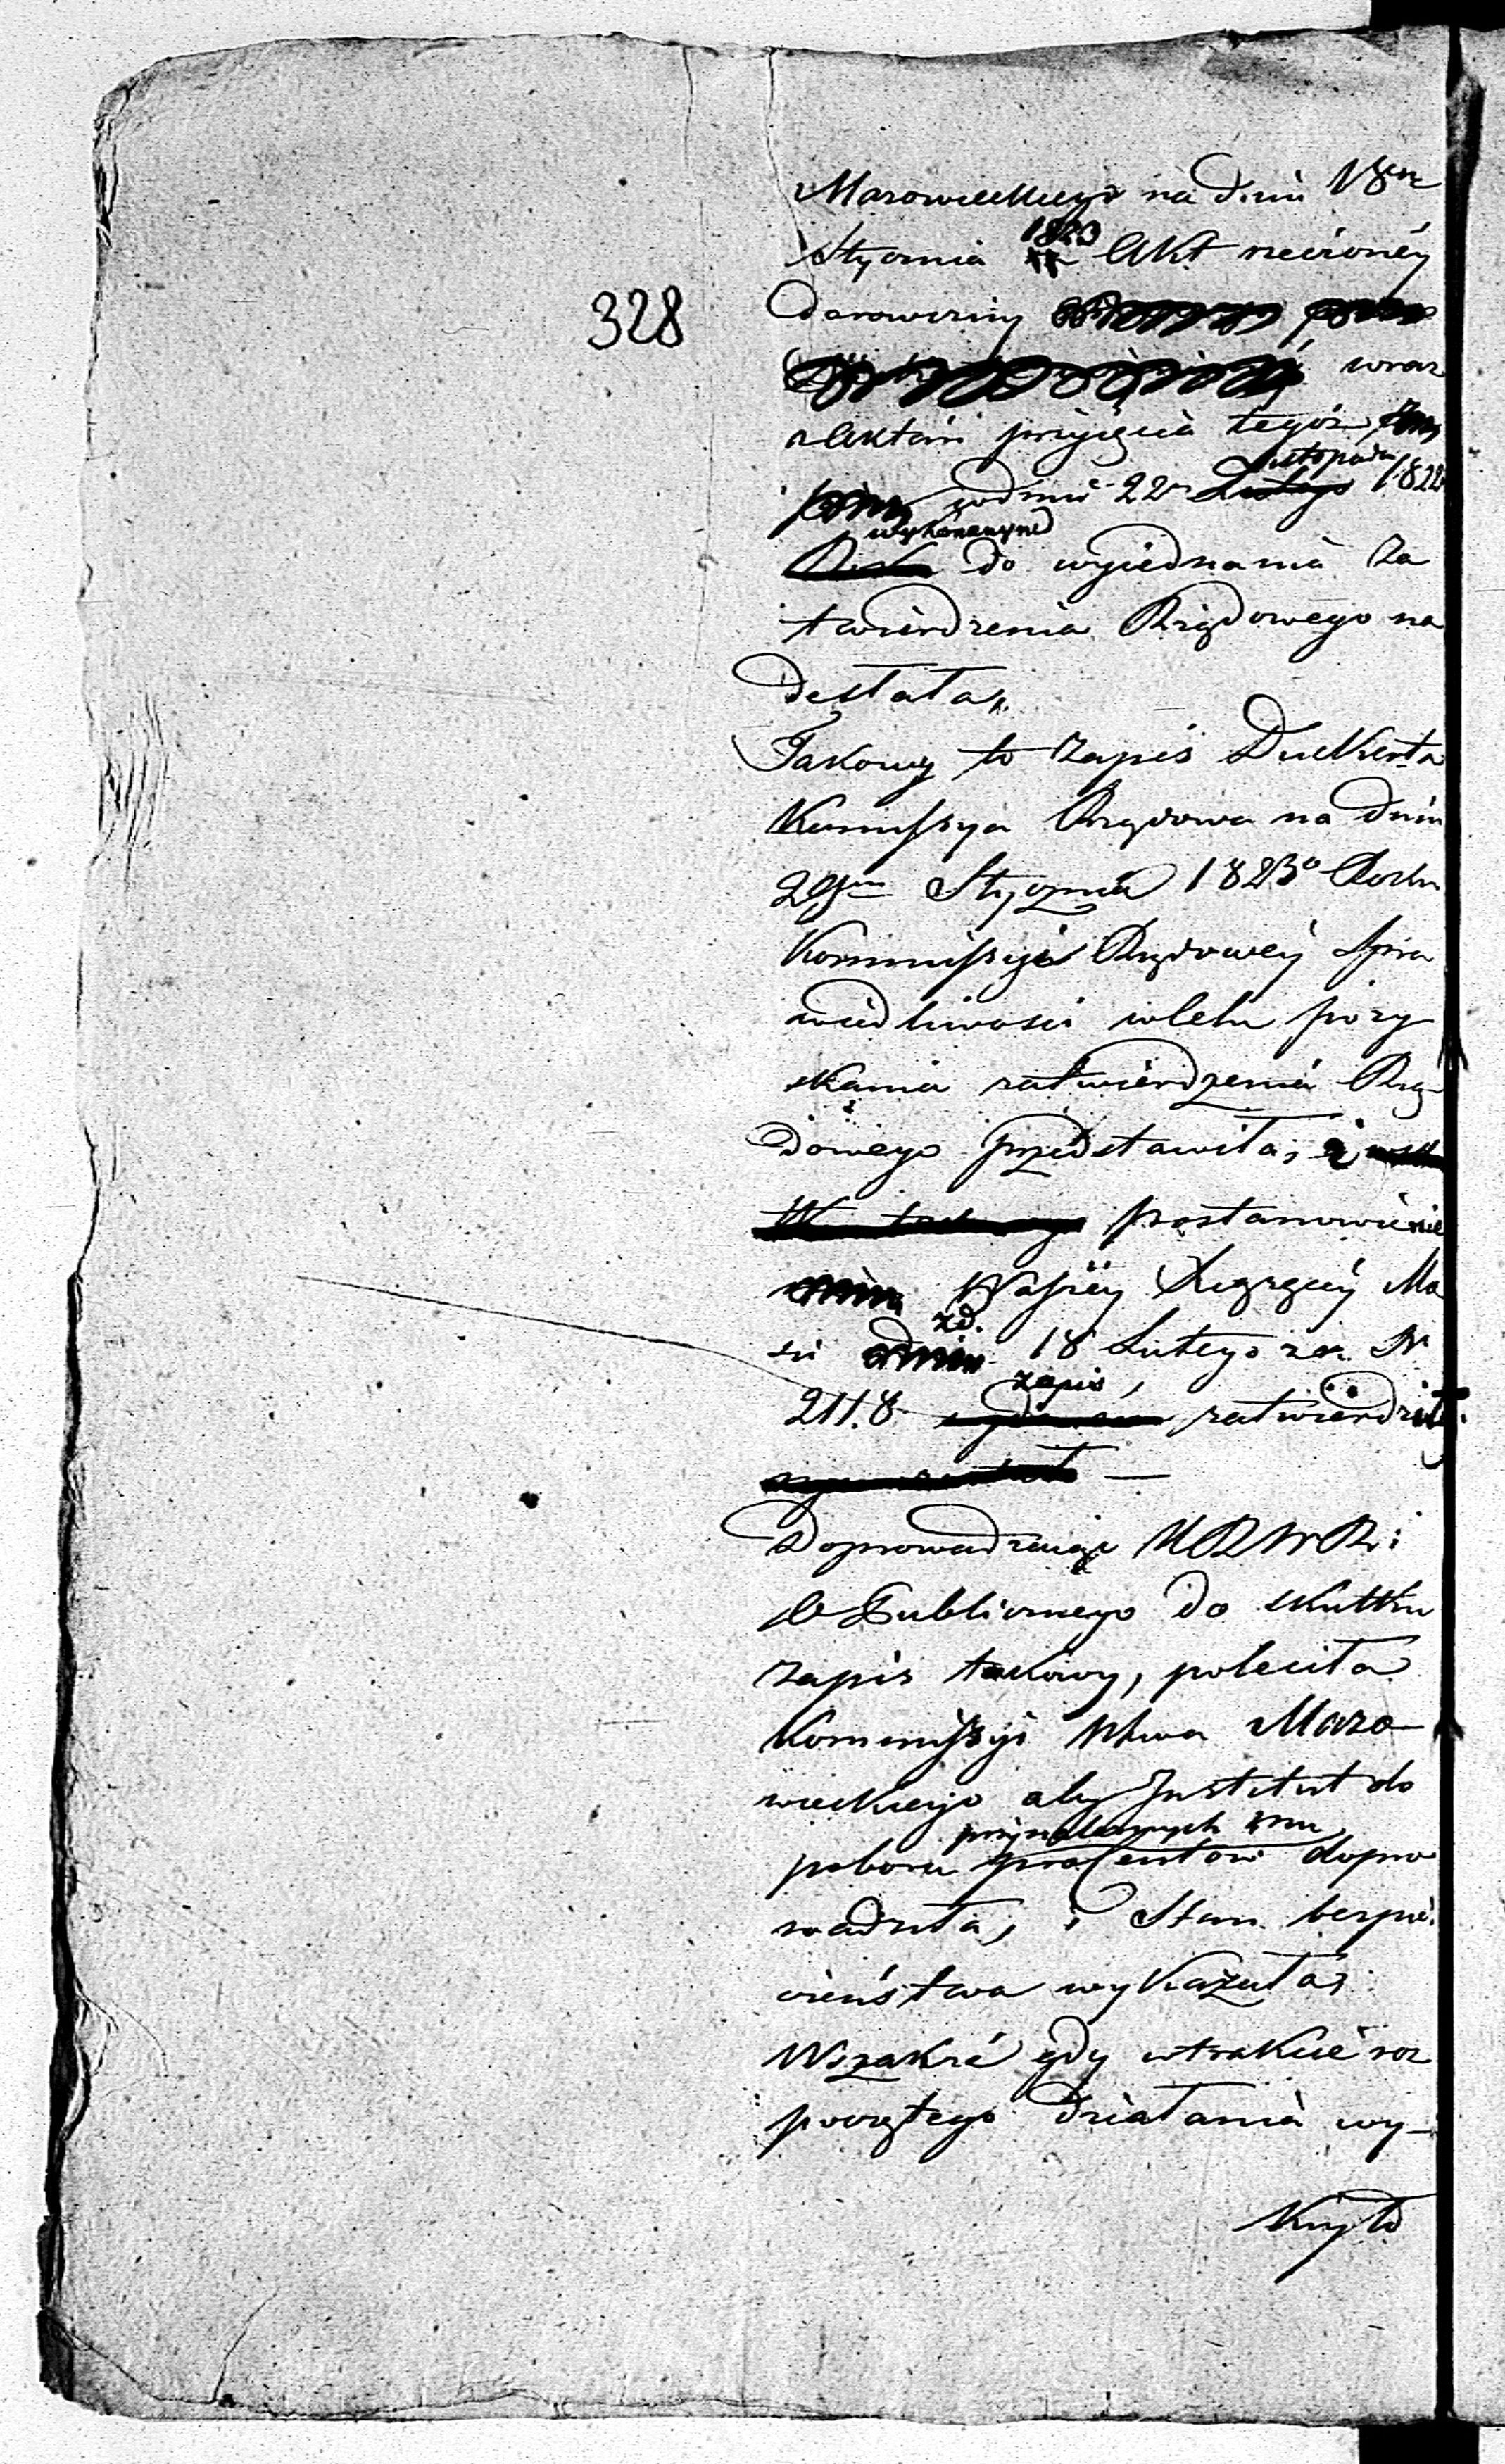 Mazowieckiego na dniu 18m
Stycznia 1823 Akt rzeczonéy
328
darowizny
wraz
z Aktem przyięcia tegoż
z dnia 22 Listopada 1822
wykonanym
do wyiednania za
twierdzenia Rządowego na
destała,
Takowy to zapis Duckerta
Kommissya Rządowa na dniu
29m Stycznia 1823o Roku
Kommissyi Rządowéy Spra
wiedliwosci w celu pozy
skania zatwierdzenia Rzą
dowego przedstawiła,
postanowienie
Xiążęcéy Mo
sci zd. 18 Lutego za N
2118 zapis, zatwierdził.
Doprowadzaiąc KRWR i
O Publicznego do skutku
zapis takowy, poleciła
Kommissyi Wtwa Mazo
wieckiego aby Instytut do
przynależnych mu
poboru procentów dopro
wadziła, i Stan bezpie
czeństwa wykazała,
Wszakże gdy w trakcie roz
poczętego działania wy
kryto